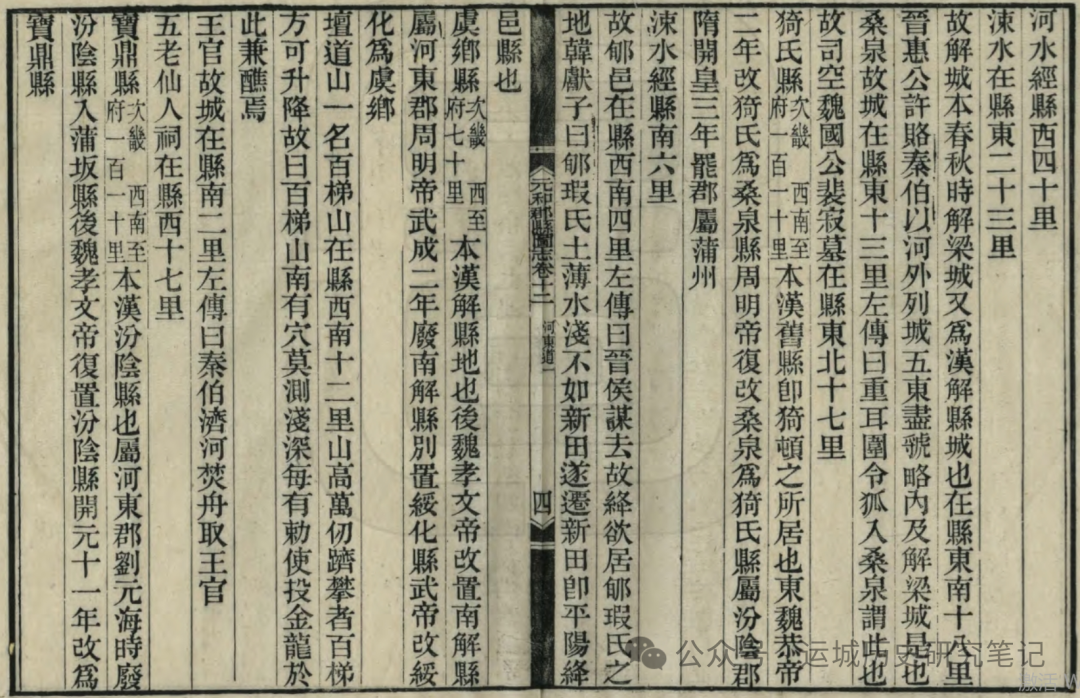 河水經縣西四十里
涑水在縣東二十三里
故解城本春秋時解梁城又為漢解縣城也在縣東南十八里
晉惠公許賂秦伯以河外列城五東盡虢略內及解梁城是也
桑泉故城在縣東十三里左傳曰重耳圍令狐入桑泉謂此也
故司空魏國公裴寂墓在縣東北十七里
猗氏縣次畿 西南至府一百一十里本漢舊縣卽猗頓之所居也東魏恭帝
二年改猗氏爲桑泉縣周明帝復改桑泉爲猗氏縣屬汾陰郡
隋開皇三年罷郡屬蒲州
涑水經縣南六里
故郇邑在縣西南四里左傳曰晉侯謀去故絳欲居郇瑕氏之
地韓獻子曰郇瑕氏土薄水淺不如新田遂遷新田卽平陽絳
元和郡縣圖志卷十二 河東道一 四
邑縣也
虞鄉縣次畿 西至府七十里本漢解縣地也後魏孝文帝改置南解縣
屬河東郡周明帝武成二年廢南解縣別置綏化縣武帝改綏
化爲虞鄉
壇道山一名百梯山在縣西南十二里山高萬仞躋攀者百梯
方可升降故曰百梯山南有穴莫測淺深每有勅使投金龍於
此兼醮焉
王官故城在縣南二里左傳曰秦伯濟河焚舟取王官
五老仙人祠在縣西十七里
寶鼎縣次畿 西南至府一百一十里本漢汾陰縣也屬河東郡劉元海時廢
汾陰縣入蒲坂縣後魏孝文帝復置汾陰縣開元十一年改爲
寶鼎縣
公众号·运城历史研究笔记
激活 W